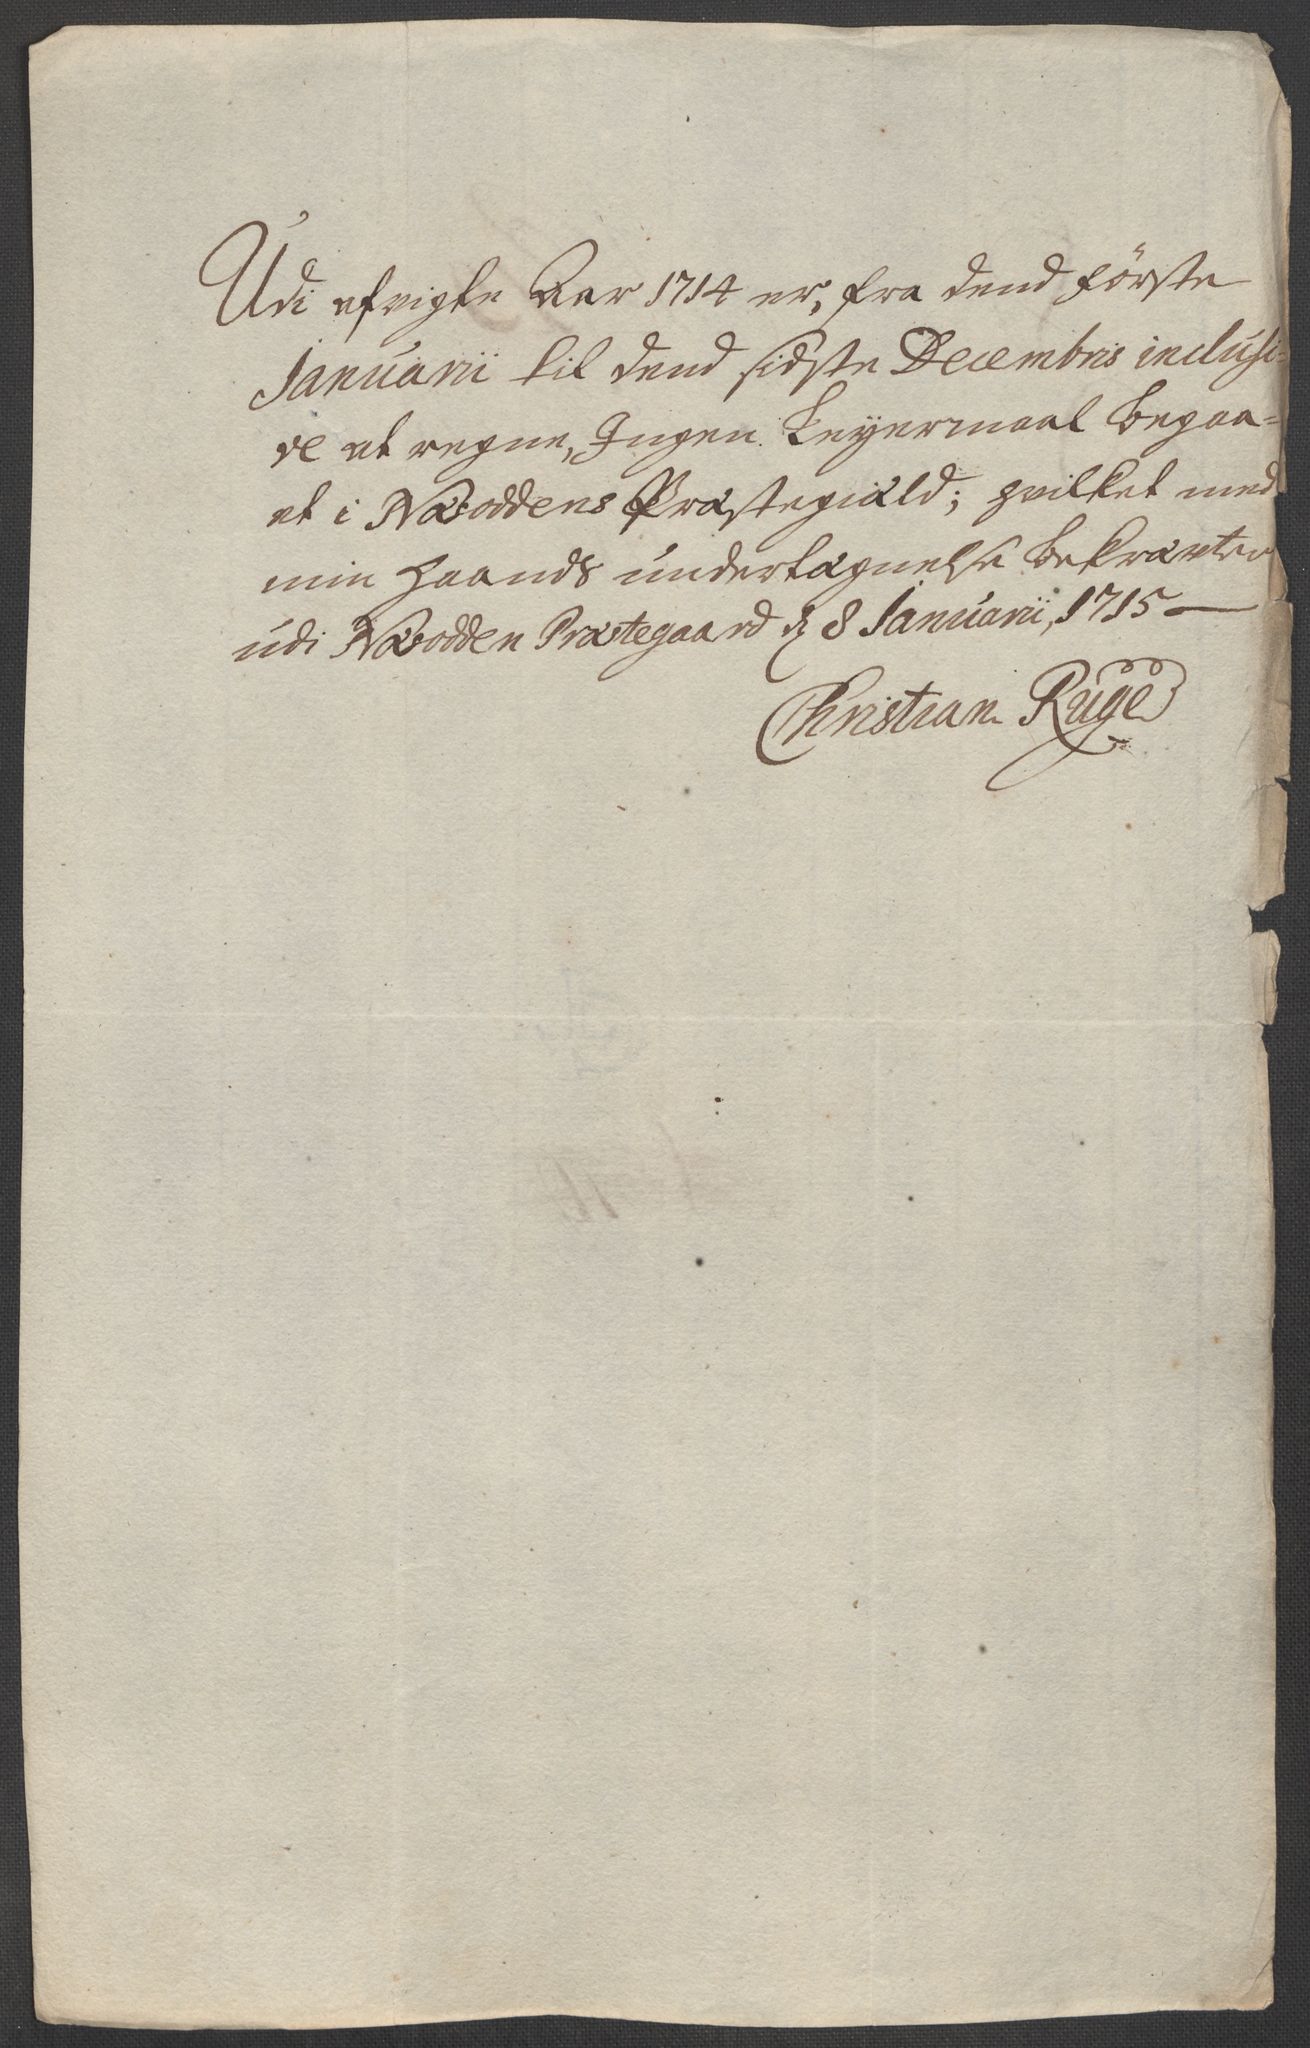 Udi afvigte Aar 1714 er, fra dend förste
Januarii til dend sidste Decembris inclusi-
ve at regne, Ingen Leyermaal begaa-
et i Næsoddens Præstegiæld; hvilket med
min haands undertægnelse bekræfter
udi Næsodden Præstegaard d. 8 Januarii, 1715
Christian Ruge